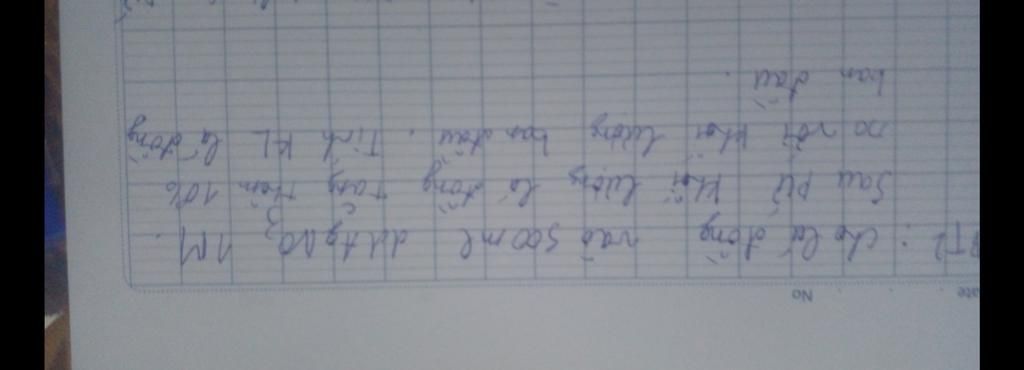 Date . . No
BT2 : Cho lá đồng vào 500ml dd AgNO3 1M.
Sau pứ khối lượng lá đồng tăng thêm 10%
so với khối lượng ban đầu. Tính KL lá đồng
ban đầu.